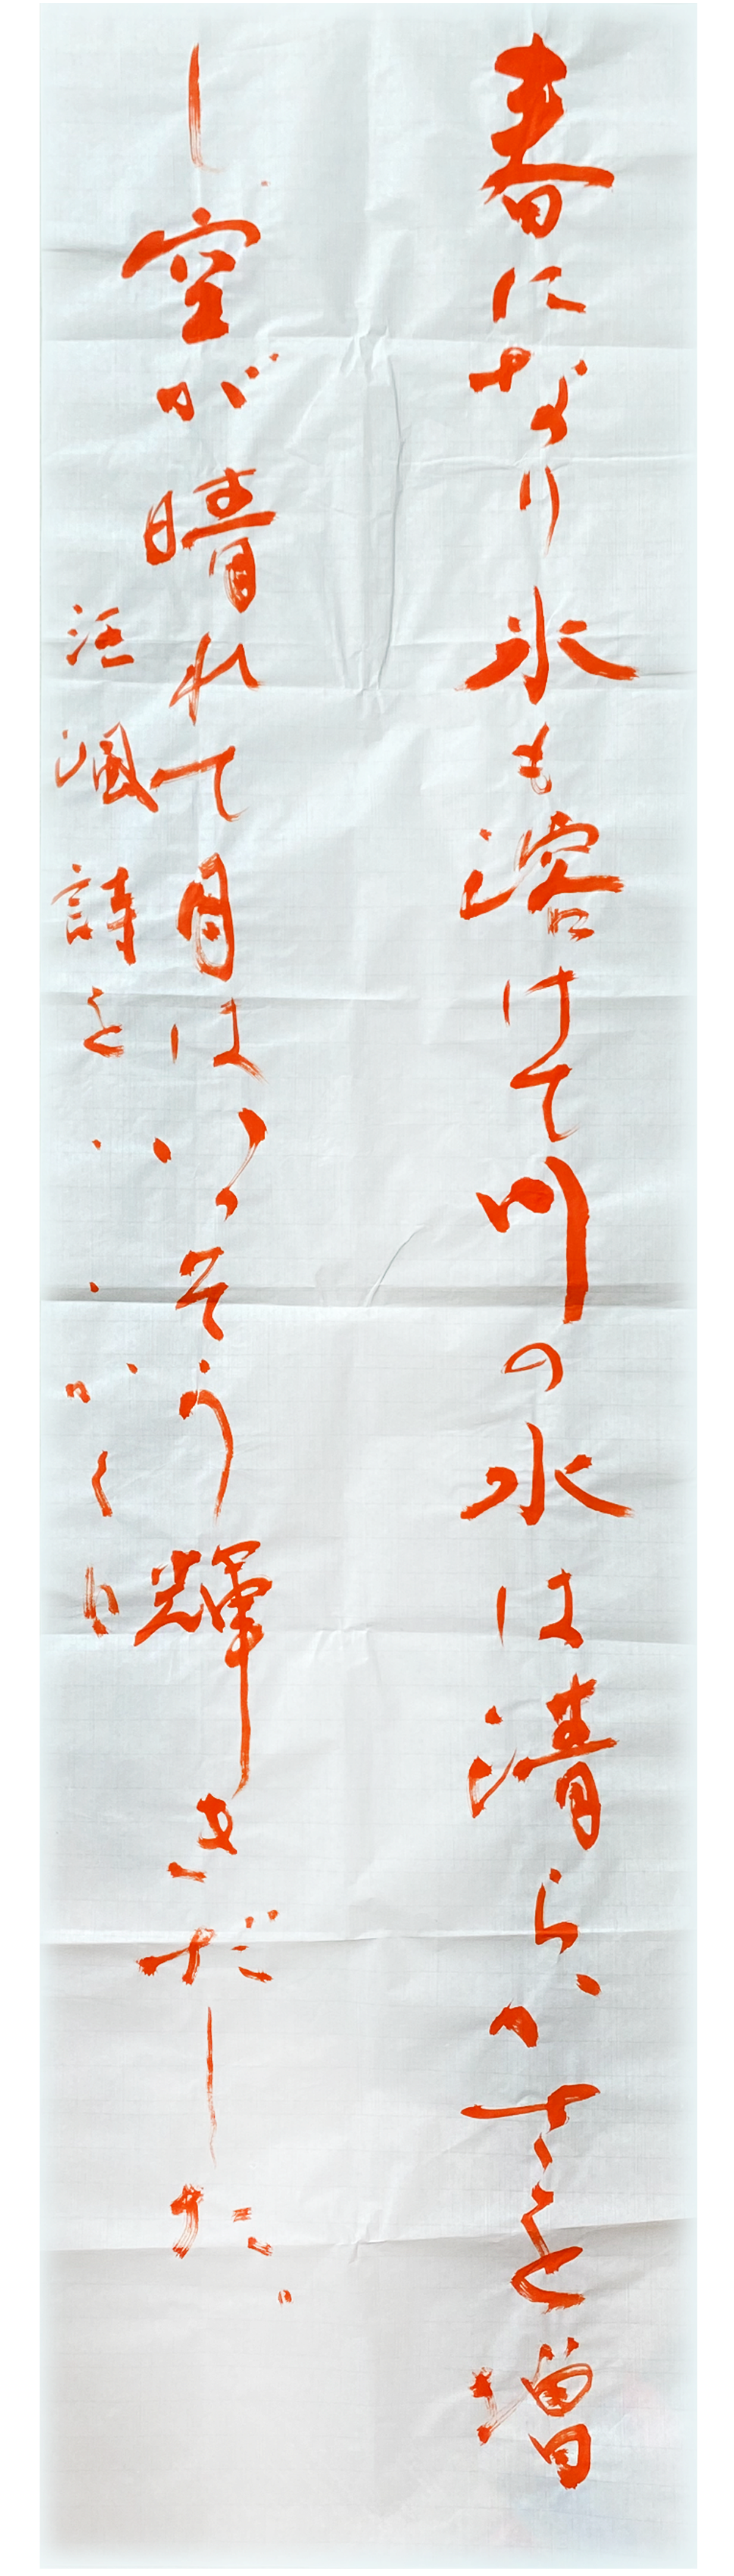 春になり氷も溶けて川の水は清らかさを増
し空が晴れて月はいっそう輝きだした。
詩を